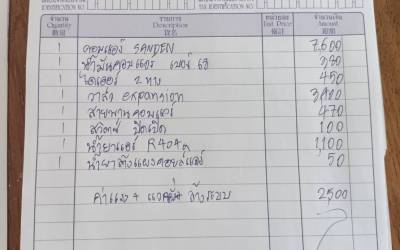 จำนวน รายการ หน่วยละ จำนวนเงิน
Quantity Description Unit Price Amount
數量 貨名 單價 銀額
1 คอมแอร์ SANDEN 7,600
1 น้ำมันคอมแอร์ เบอร์ 68 380
1 ไดเออร์ 2 หาง 450
1 วาล์ว expansion
1 สายพานคอมแอร์ 470
1 สวิตช์ ปิดเปิด 100
1 น้ำยาแอร์ R404a 1,100
1 น้ำยาล้างแผงคอยล์แอร์ 50
ค่าแรง + แวคคั่ม ล้างระบบ 2500